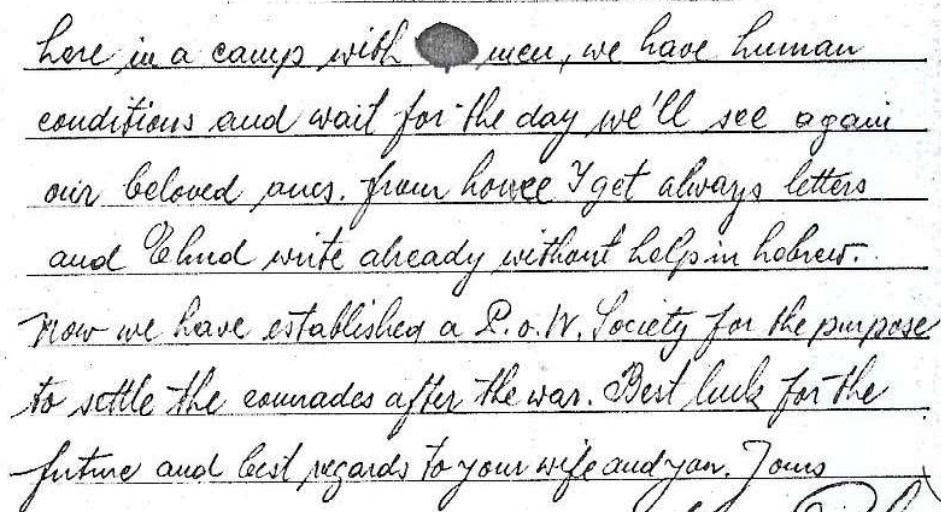 here in a camp with men, we have human
conditions and wait for the day we'll see again
our beloved ones. from home I get always letters
and Ehud write already without help in hebrew.
Now we have established a P.o.W. Society for the purpose
to settle the comrades after the war. Best luck for the
future and best regards to your wife and you. Yours